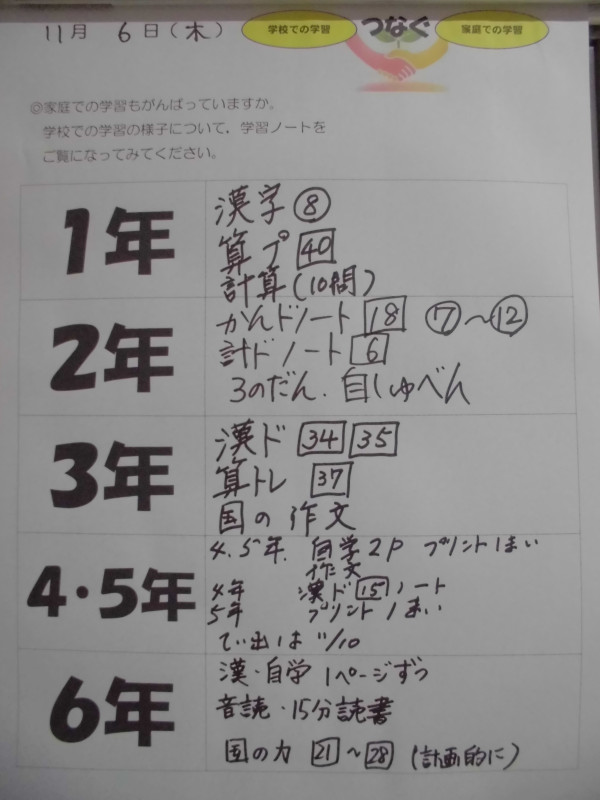 11月 6日(木)
学校での学習 つなぐ 家庭での学習
◎家庭での学習もがんばっていますか。
学校での学習の様子について，学習ノートを
ご覧になってみてください。
1年
漢字⑧
算プ 40
計算(10問)
2年
かんドノート 18 ⑦～⑫
計ドノート 6
3のだん.自しゅべん
3年
漢ド 34 35
算トレ 37
国の作文
4・5年
4.5年. 自学2P プリント1まい
作文
4年 漢ド 15 ノート
5年 プリント1まい
てい出は 11/10
6年
漢・自学 1ページずつ
音読・15分読書
国の力 21～28 (計画的に)